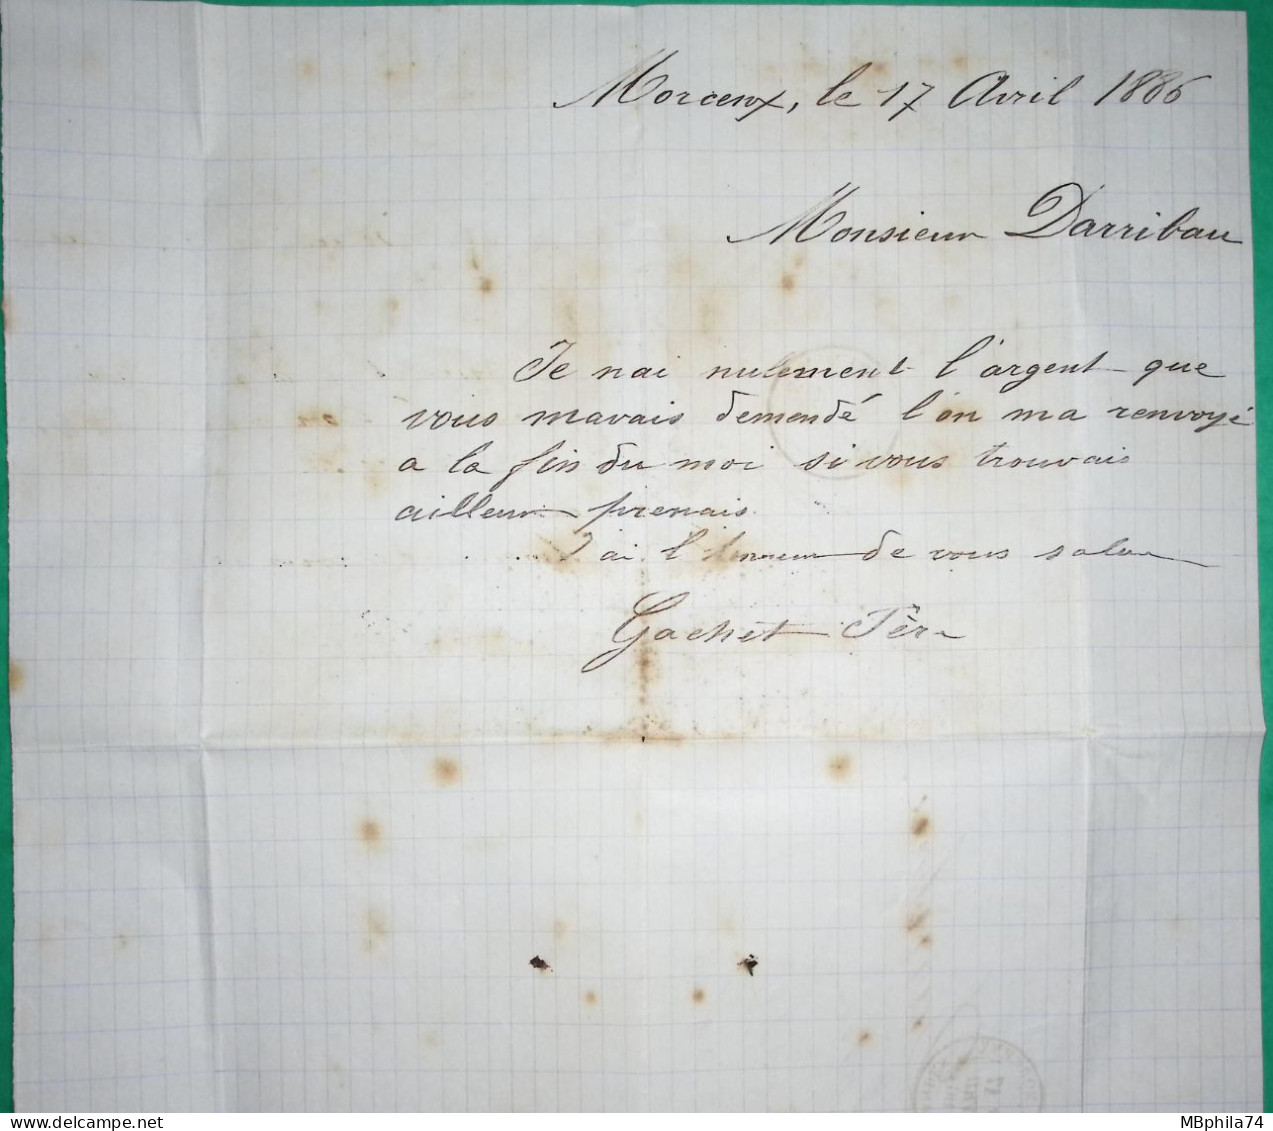 Morcenx, le 17 Avril 1886
Monsieur Darribau
Je nai nulement l'argent que
vous mavais demendé l'on ma renvoyé
a la fin du moi si vous trouvais
ailleur prenais
J'ai l'honneur de vous salue
Gachet Père
MBphila74